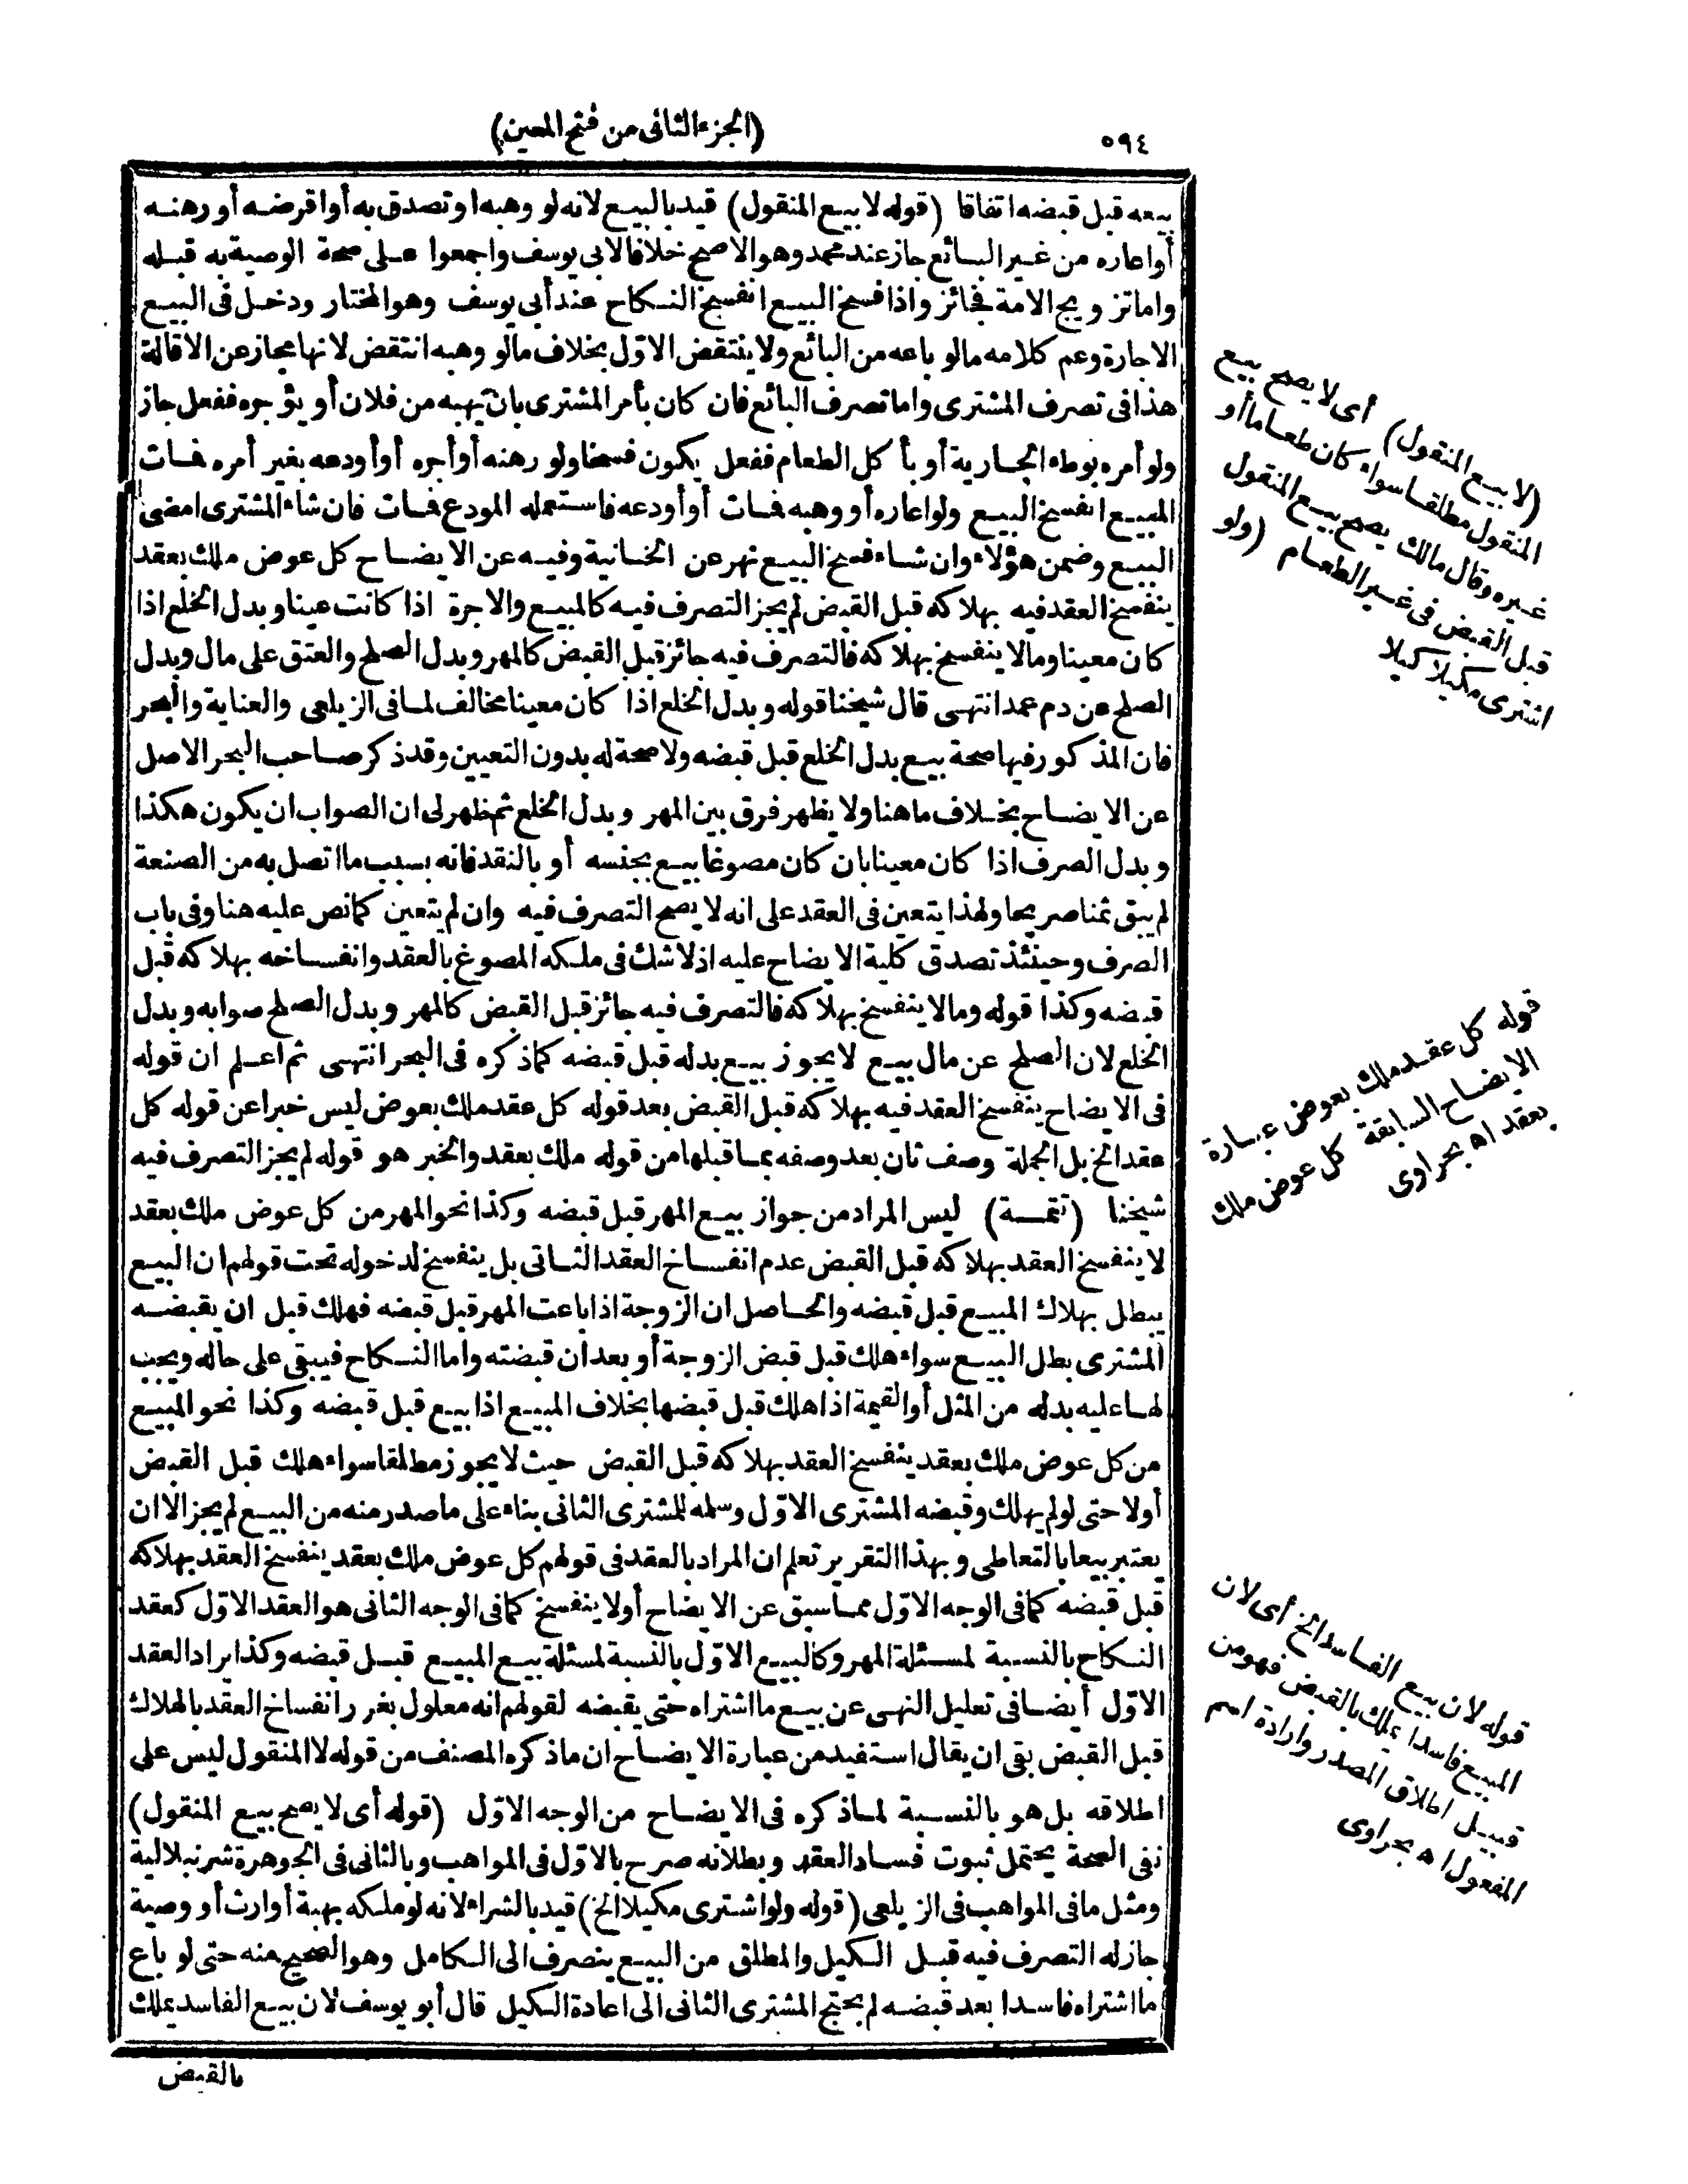 ٥٩٤
(الجزء الثانى من فتح المعين)
بيعه قبل قبضه اتفاقا (قوله لا بيع المنقول) قيد بالبيع لانه لو وهبه او تصدق به أو اقرضه أو رهنه
أو اعاره من غير البائع جاز عند محمد وهو الاصح خلافا لابى يوسف واجمعوا على صحة الوصية به قبله
واما تزويج الامة فجائز واذا فسخ البيع انفسخ النكاح عند أبى يوسف وهو المختار ودخل فى البيع
الاجارة وعم كلامه ما لو باعه من البائع ولا ينتقض الاول بخلاف ما لو وهبه انتقض لانها مجاز عن الاقالة
هذا فى تصرف المشترى واما تصرف البائع فان كان بأمر المشترى بان يهبه من فلان أو يؤجره ففعل جاز
ولو أمره بوطء الجارية أو بأكل الطعام ففعل يكون فسخا ولو رهنه أو أجره أو أودعه بغير أمره فمات
المبيع انفسخ البيع ولو اعاره أو وهبه فمات أو أودعه فاستعمله المودع فمات فان شاء المشترى امضى
البيع وضمن هؤلاء وان شاء فسخ البيع نهر عن الخانية وفيه عن الايضاح كل عوض ملك بعقد
ينفسخ العقد فيه بهلاكه قبل القبض لم يجز التصرف فيه كالمبيع والاجرة اذا كانت عينا وبدل الخلع اذا
كان معينا وما لا ينفسخ بهلاكه فالتصرف فيه جائز قبل القبض كالمهر وبدل الصلح والعتق على مال وبدل
الصلح عن دم عمد انتهى قال شيخنا قوله وبدل الخلع اذا كان معينا مخالف لما فى الزيلعى والعناية والبحر
فان المذكور فيها صحة بيع بدل الخلع قبل قبضه ولا صحة له بدون التعيين وقد ذكر صاحب البحر الاصل
عن الايضاح بخلاف ما هنا ولا يظهر فرق بين المهر وبدل الخلع ثم ظهر لى ان الصواب ان يكون هكذا
وبدل الصرف اذا كان معينا بان كان مصوغا بيع بجنسه أو بالنقد فانه بسبب ما اتصل به من الصنعة
لم يبق ثمنا صريحا ولهذا يتعين فى العقد على انه لا يصح التصرف فيه وان لم يتعين كما نص عليه هنا وفى باب
الصرف وحينئذ تصدق كلية الايضاح عليه اذ لا شك فى ملكه المصوغ بالعقد وانفساخه بهلاكه قبل
قبضه وكذا قوله وما لا ينفسخ بهلاكه فالتصرف فيه جائز قبل القبض كالمهر وبدل الصلح صوابه وبدل
الخلع لان الصلح عن مال بيع لا يجوز بيع بدله قبل قبضه كما ذكره فى البحر انتهى ثم اعلم ان قوله
فى الايضاح ينفسخ العقد فيه بهلاكه قبل القبض بعد قوله كل عقد ملك بعوض ليس خبرا عن قوله كل
عقد الخ بل الجملة وصف ثان بعد وصفه بما قبلها من قوله ملك بعقد والخبر هو قوله لم يجز التصرف فيه
شيخنا (تتمة) ليس المراد من جواز بيع المهر قبل قبضه وكذا نحو المهر من كل عوض ملك بعقد
لا ينفسخ العقد بهلاكه قبل القبض عدم انفساخ العقد الثانى بل ينفسخ لدخوله تحت قولهم ان البيع
يبطل بهلاك المبيع قبل قبضه والحاصل ان الزوجة اذا باعت المهر قبل قبضه فهلك قبل ان يقبضه
المشترى بطل البيع سواء هلك قبل قبض الزوجة أو بعد ان قبضته واما النكاح فيبقى على حاله ويجب
لها عليه بدله من المثل أو القيمة اذا هلك قبل قبضها بخلاف المبيع اذا بيع قبل قبضه وكذا نحو المبيع
من كل عوض ملك بعقد ينفسخ العقد بهلاكه قبل القبض حيث لا يجوز مطلقا سواء هلك قبل القبض
أو لا حتى لو لم يهلك وقبضه المشترى الاول وسلمه للمشترى الثانى بناء على ما صدر منه من البيع لم يجز الا ان
يعتبر بيعا بالتعاطى وبهذا التقرير تعلم ان المراد بالعقد فى قولهم كل عوض ملك بعقد ينفسخ العقد بهلاكه
قبل قبضه كما فى الوجه الاول مما سبق عن الايضاح أو لا ينفسخ كما فى الوجه الثانى هو العقد الاول كعقد
النكاح بالنسبة لمسئلة المهر وكالبيع الاول بالنسبة لمسئلة بيع المبيع قبل قبضه وكذا يراد العقد
الاول أيضا فى تعليل النهى عن بيع ما اشتراه حتى يقبضه لقولهم انه معلول بغرر انفساخ العقد بالهلاك
قبل القبض بقى ان يقال استفيد من عبارة الايضاح ان ما ذكره المصنف من قوله لا المنقول ليس على
اطلاقه بل هو بالنسبة لما ذكره فى الايضاح من الوجه الاول (قوله أى لا يصح بيع المنقول)
نفى الصحة يحتمل ثبوت فساد العقد وبطلانه صرح بالاول فى المواهب وبالثانى فى الجوهرة شرنبلالية
ومثل ما فى المواهب فى الزيلعى (قوله ولو اشترى مكيلا الخ) قيد بالشراء لانه لو ملكه بهبة أو ارث أو وصية
جاز له التصرف فيه قبل الكيل والمطلق من البيع ينصرف الى الكامل وهو الصحيح منه حتى لو باع
ما اشتراه فاسدا بعد قبضه لم يحتج المشترى الثانى الى اعادة الكيل قال أبو يوسف لان بيع الفاسد يملك
بالقبض
(لا بيع المنقول) أى لا يصح بيع
المنقول مطلقا سواء كان طعاما أو
غيره وقال مالك يصح بيع المنقول
قبل القبض فى غير الطعام (ولو
اشترى مكيلا كيلا
قوله كل عقد ملك بعوض عبارة
الايضاح السابقة كل عوض ملك
بعقد اه بحراوى
قوله لان بيع الفاسد الخ أى لان
المبيع فاسدا يملك بالقبض فهو من
قبيل اطلاق المصدر وارادة اسم
المفعول اه بحراوى